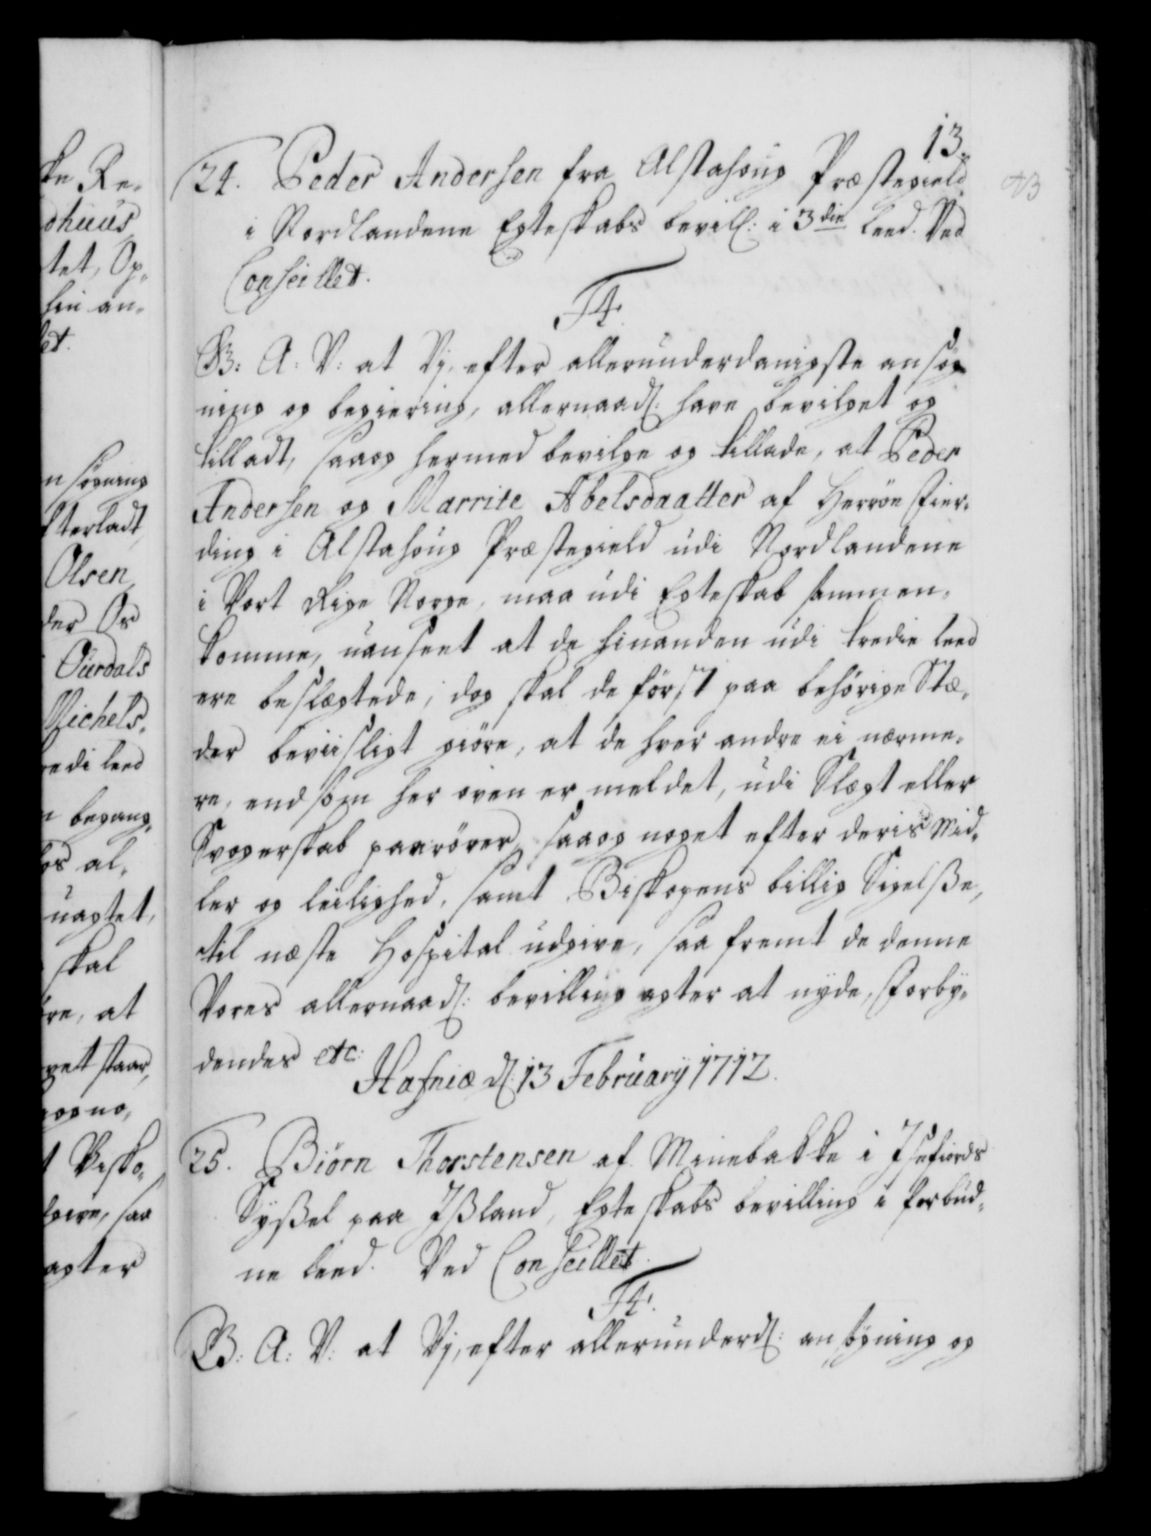 13.
93
24. Peder Andersen fra Alstahoug Præstegield
i Nordlandene Egteskabs bevill: i 3die leed. Ved
Conseillet.
F4.
G: A: V: at Vj, efter allerunderdanigste ansøg-
ning og begiering, allernaad: have bevilget og
tilladt, saaog hermed bevilge og tillade, at Peder
Andersen og Marrite Abelsdaatter af Herrøe Fier-
ding i Alstahoug Præstegield udi Nordlandene
i Vort Rige Norge, maa udi Egteskab sammen-
komme, uanseet at de hinanden udi tredie leed
ere beslægtede; dog skal de først paa behørige Stæ-
der beviisligt giøre, at de hver andre ei nærme-
re, end som her oven er meldet, udi Slægt eller
Svogerskab paarører, saaog noget efter deris Mid-
ler og leilighed, samt Biskopens billig Sigelße,
til næste Hospital udgive, saa fremt de denne
Vores allernaad: bevilling agter at nyde, Forby-
dendes etc:
Hafniæ d: 13 February 1712.
25. Biørn Thorstensen af Minebakke i Isefiords
Syßel paa Ißland, Egteskabs bevilling i forbud-
ne leed. Ved Conseillet.
F4.
G: A: V: at Vj, efter allerunderd: ansøgning og
ke Re-
dhuus
tet, Op-
hen an-
let.
nsøgning
fterladt
Olsen
der Os
Ourdals
Michels-
redi leed
n begang-
os al-
uagtet,
skal
re, at
vet staar,
t Bisko-
dgive, saa
agter